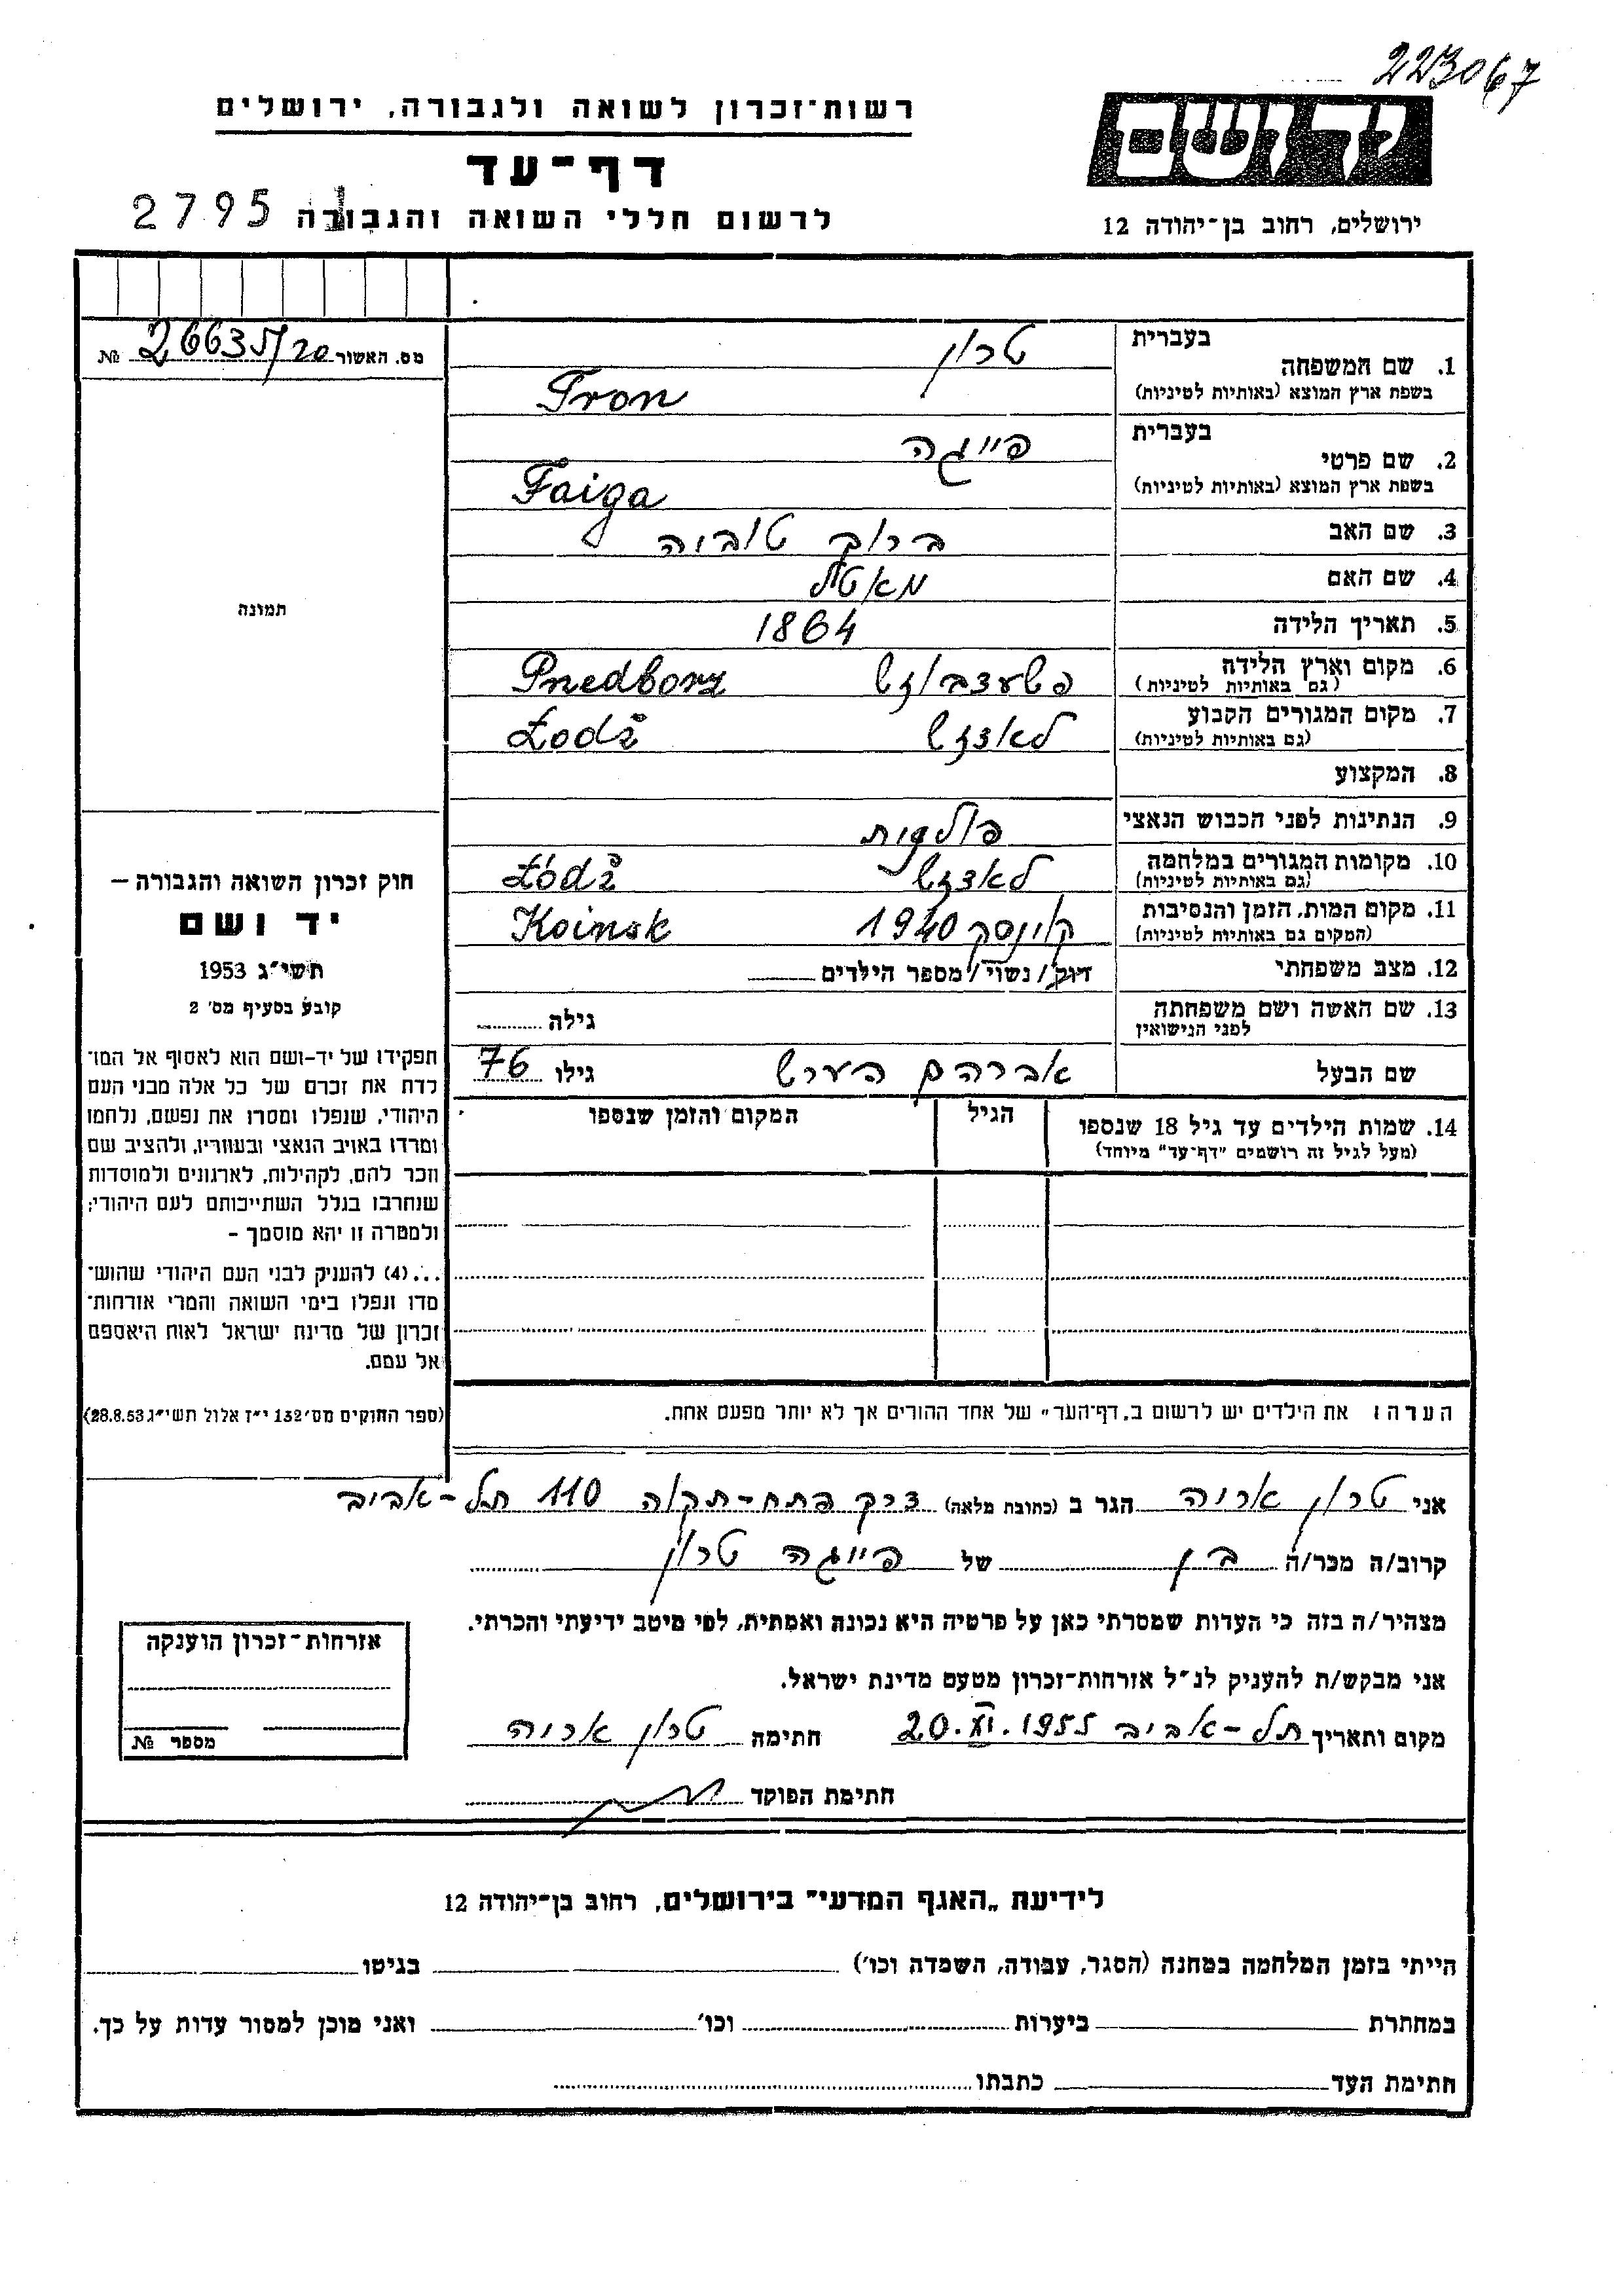 223067
ידושם
ירושלים, רחוב בן־יהודה 12
רשות־זכרון לשואה ולגבורה, ירושלים
דף־עד
לרשום חללי השואה והגבורה 2795
מס. האשור 26635/20 №
תמונה
חוק זכרון השואה והגבורה –
יד ושם
תשי״ג 1953
קובע בסעיף מס׳ 2
תפקידו של יד-ושם הוא לאסוף אל המו־
לדת את זכרם של כל אלה מבני העם
היהודי, שנפלו ומסרו את נפשם, נלחמו
ומרדו באויב הנאצי ובעוזריו, ולהציב שם
וזכר להם, לקהילות, לארגונים ולמוסדות
שנחרבו בגלל השתייכותם לעם היהודי;
ולמטרה זו יהא מוסמך –
...(4) להעניק לבני העם היהודי שהוש־
מדו ונפלו בימי השואה והמרי אזרחות־
זכרון של מדינת ישראל לאות היאספם
אל עמם.
(ספר החוקים מס׳ 132 י״ז אלול תשי״ג 28.8.53)
בעברית טרון
1. שם המשפחה
בשפת ארץ המוצא (באותיות לטיניות) Tron
בעברית פייגה
2. שם פרטי
בשפת ארץ המוצא (באותיות לטיניות) Faiga
3. שם האב ברוך טוביה
4. שם האם מאטל
5. תאריך הלידה 1864
6. מקום וארץ הלידה Pnedborz
(גם באותיות לטיניות)
7. מקום המגורים הקבוע לאדזש Łodż
(גם באותיות לטיניות)
8. המקצוע
9. הנתינות לפני הכבוש הנאצי פולנית
10. מקומות המגורים במלחמה לאדזש Łódż
(גם באותיות לטיניות)
11. מקום המות, הזמן והנסיבות קוינסק 1940 Koinsk
(המקום גם באותיות לטיניות)
12. מצב משפחתי רווק/ נשוי/ מספר הילדים
13. שם האשה ושם משפחתה גילה
לפני הנישואין
שם הבעל אברהם הערש גילו 76
14. שמות הילדים עד גיל 18 שנספו הגיל המקום והזמן שנספו
(מעל לגיל זה רושמים ״דף־עד״ מיוחד)
הערה: את הילדים יש לרשום ב„דף־העד״ של אחד ההורים אך לא יותר מפעם אחת.
אני טרון אריה הגר ב (כתובת מלאה) דרך פתח-תקוה 110 תל-אביב
קרוב/ה מכר/ה בן של פייגה טרון
מצהיר/ה בזה כי העדות שמסרתי כאן על פרטיה היא נכונה ואמתית, לפי מיטב ידיעתי והכרתי.
אני מבקש/ת להעניק לנ״ל אזרחות־זכרון מטעם מדינת ישראל.
מקום ותאריך תל-אביב 20.XI.1955 חתימה טרון אריה
חתימת הפוקד
אזרחות־זכרון הוענקה
מספר №
לידיעת „האגף המדעי״ בירושלים, רחוב בן־יהודה 12
הייתי בזמן המלחמה במחנה (הסגר, עבודה, השמדה וכו׳) בגיטו
במחתרת ביערות וכו׳ ואני מוכן למסור עדות על כך.
חתימת העד כתבתו